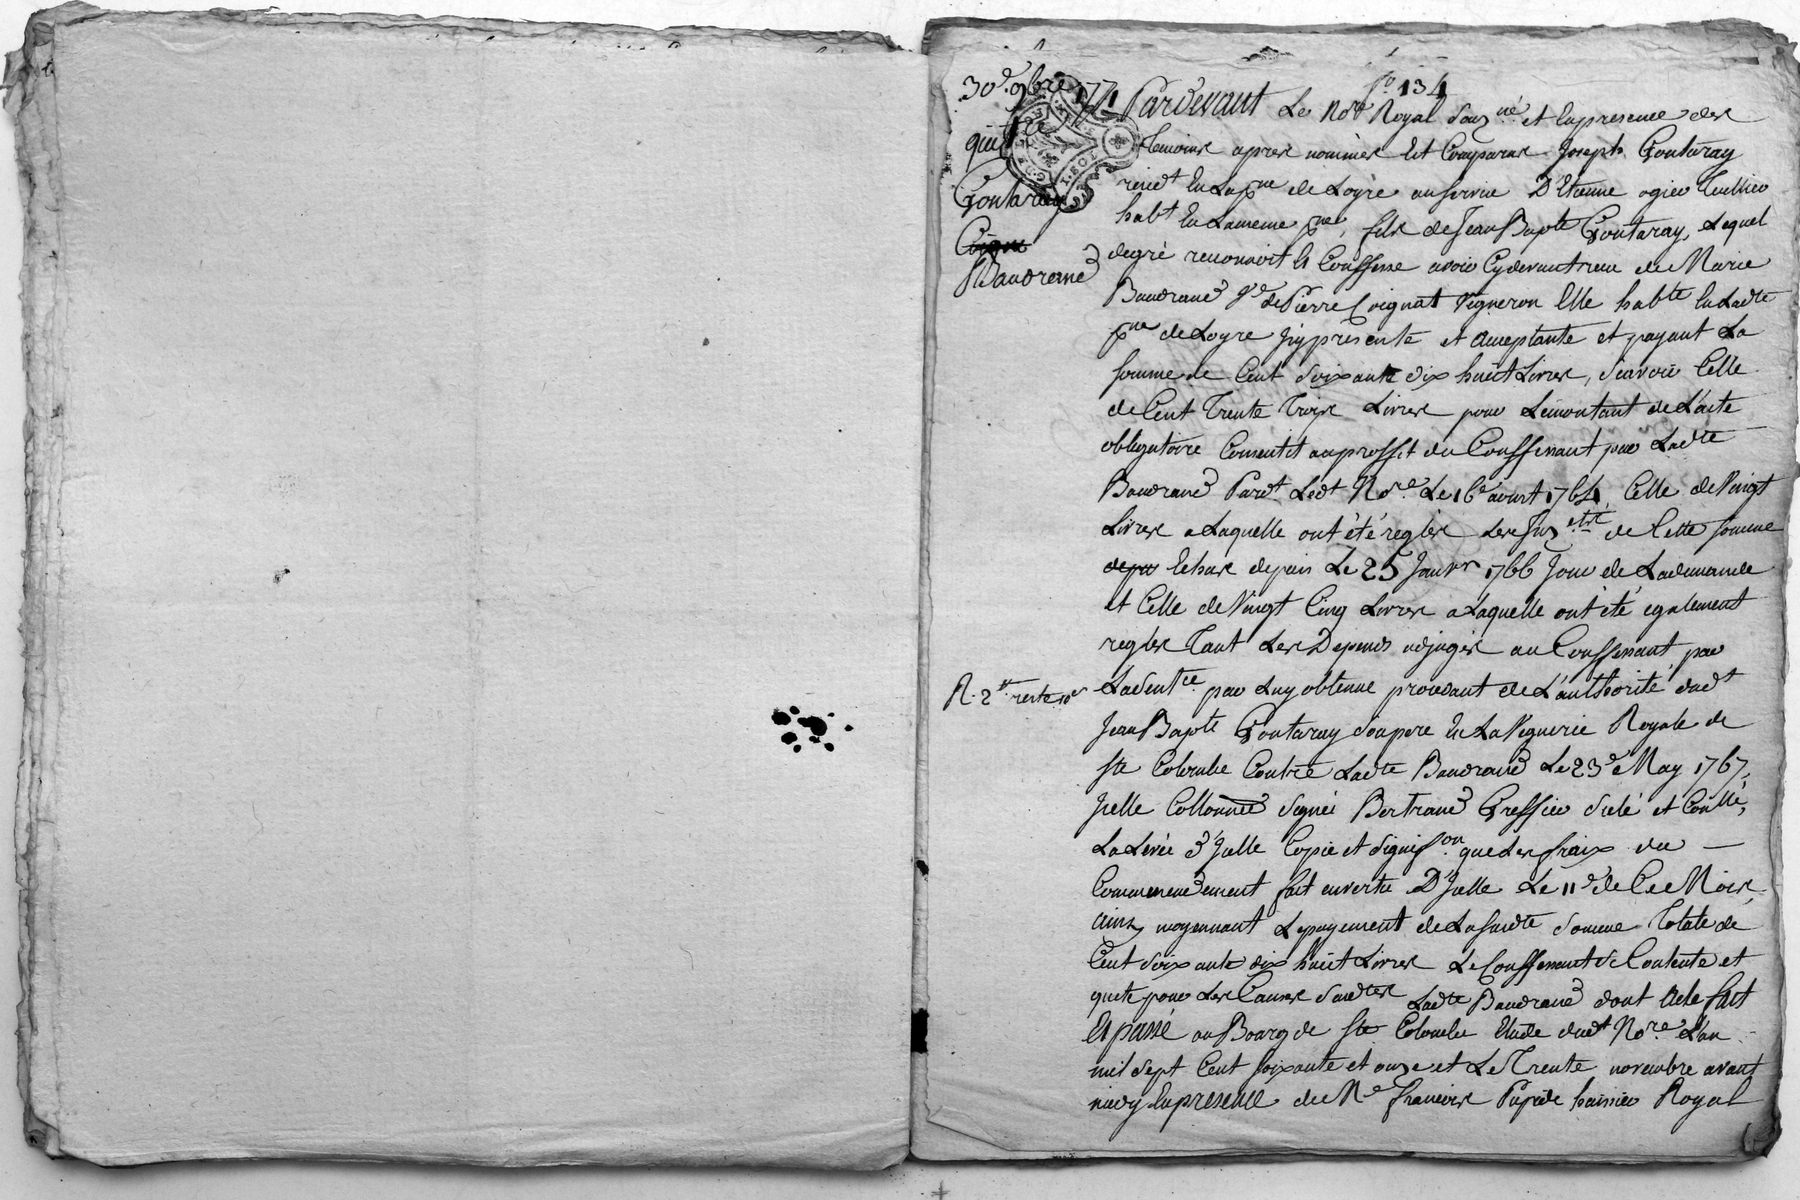 fo 134
30e 9bre 1771
quittce
Goutaray
Baudrand
Pardevant Le Nore Royal souz.né et En presence des
Temoins apres nommés Est Comparus Joseph Goutaray
resid.t En La p.ne de Loyre au service D'Etienne ogier
hab.t En Lameme p.ne, fils de Jean Bapte Goutaray, Lequel
degré reconnoit et Confesse avoir Cy devant reçu de Marie
Baudrand V.e de Pierre Coignat Vigneron Elle habte En Ladte
p.ne de Loyre Jcy presente et acceptante et payant La
somme de Cent soixante dix huit Livres, sçavoir Celle
de Cent Trente Trois Livres pour Le montant de L'acte
obligatoire Consentit au proffit du Confessant par Ladte
Baudrand Pard.t Led.t No.re Le 16e aoust 1764, Celle de Vingt
Livres a Laquelle ont été reglés Les de Cette somme
Echus depuis Le 25 Janv.er 1766 Jour de La demande
et Celle de Vingt Cinq Livres a Laquelle ont été egalement
reglés Tant Les Depends adjugés au Confessant par
R. 2tt reste
La Sent.ce par Luy obtenue procedant de L'authorité dud.t
Jean Bapte Goutaray son pere En La Viguerie Royale de
Ste Colombe Contre Ladte Baudrand Le 23e May 1767,
Jcelle Collonnée signée Bertrand Greffier scelé et Conllé,
La Levée d'Jcelle Copie et signif.on que Les fraix du —
Commencement fait en vertu D'Jcelle Le 11e de Ce Mois,
ainsy moyennant Le payement de La susdte somme Totale de
Cent soixante dix huit Livres Le Confessant se Contente et
quite pour Les Causes susdtes Ladte Baudrand dont acte fait
Et passé au Bourg de Ste Colombe Etude dud.t No.re L'an
mil sept Cent soixante et onze et Le Trente novembre avant
midy En presence de M.e francois huissier Royal